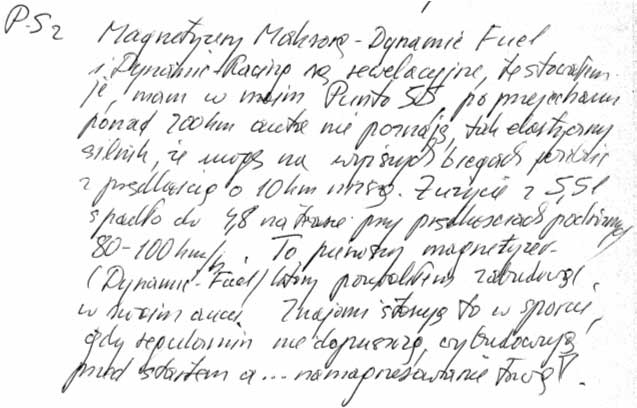 P.S2 Magnetyzery Maksora - Dynamic Fuel
i Dynamic-Racing są rewelacyjne, testowałem
je, mam w moim Punto SD, po przejechaniu
ponad 200 km auta nie poznaję, tak elastyczny
silnik, że mogę na wyższych biegach jeździć
z prędkością o 10 km niższą. Zużycie z 5,5 l
spadło do 4,8 na trasie przy prędkościach podróżnych
80-100 km/h. To pierwszy magnetyzer
(Dynamic-Fuel) który pozwoliłem zabudować
w swoim aucie. Znajomi stosują to w sporcie,
gdy regulamin nie dopuszcza, wybudowują
przed startem a... namagnesowanie trwa!